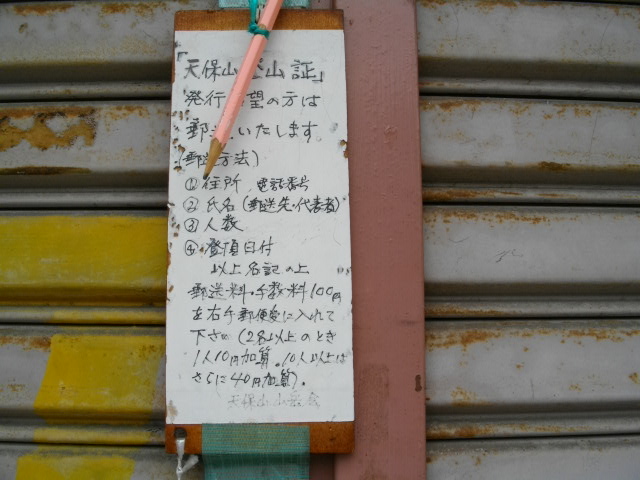 「天保山登山証」
発行希望の方は
郵送いたします
(郵送方法)
① 住所 電話番号
② 氏名(郵送先・代表者)
③ 人数
④ 登頂日付
以上名記の上
郵送料・手数料100円
左右手郵便受に入れて
下さい(2名以上のとき
1人10円加算。10人以上は
さらに40円加算)。
天保山山岳会